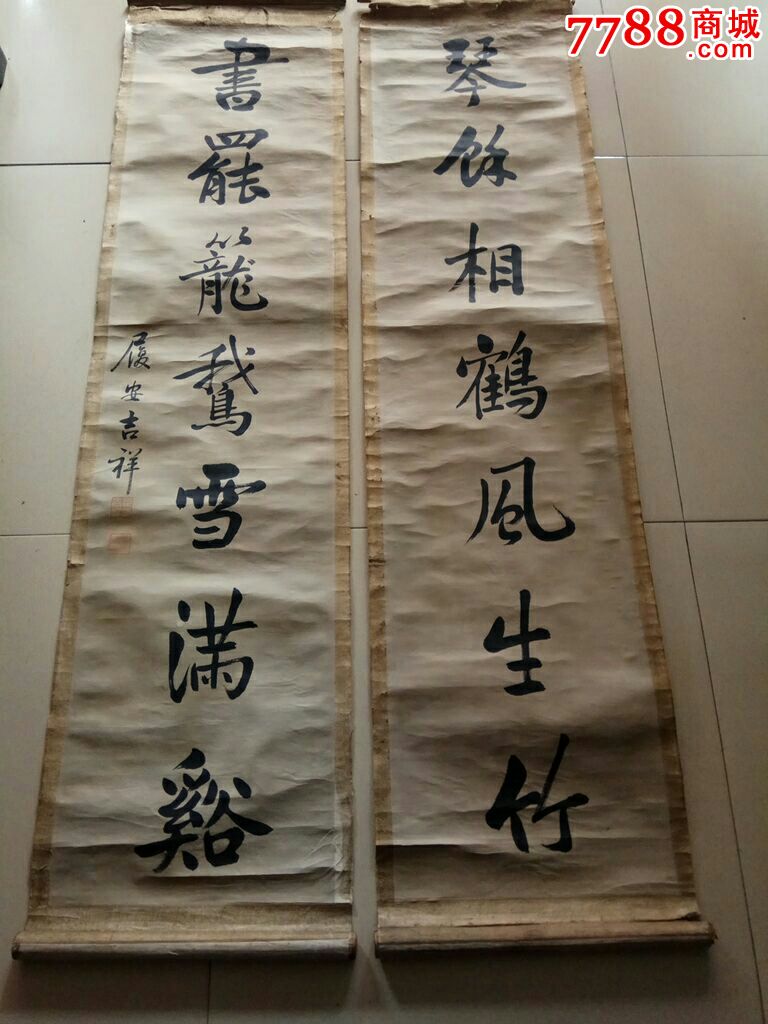 琴餘相鶴風生竹
書罷籠鵝雪滿谿
履安吉祥
7788商城
.com